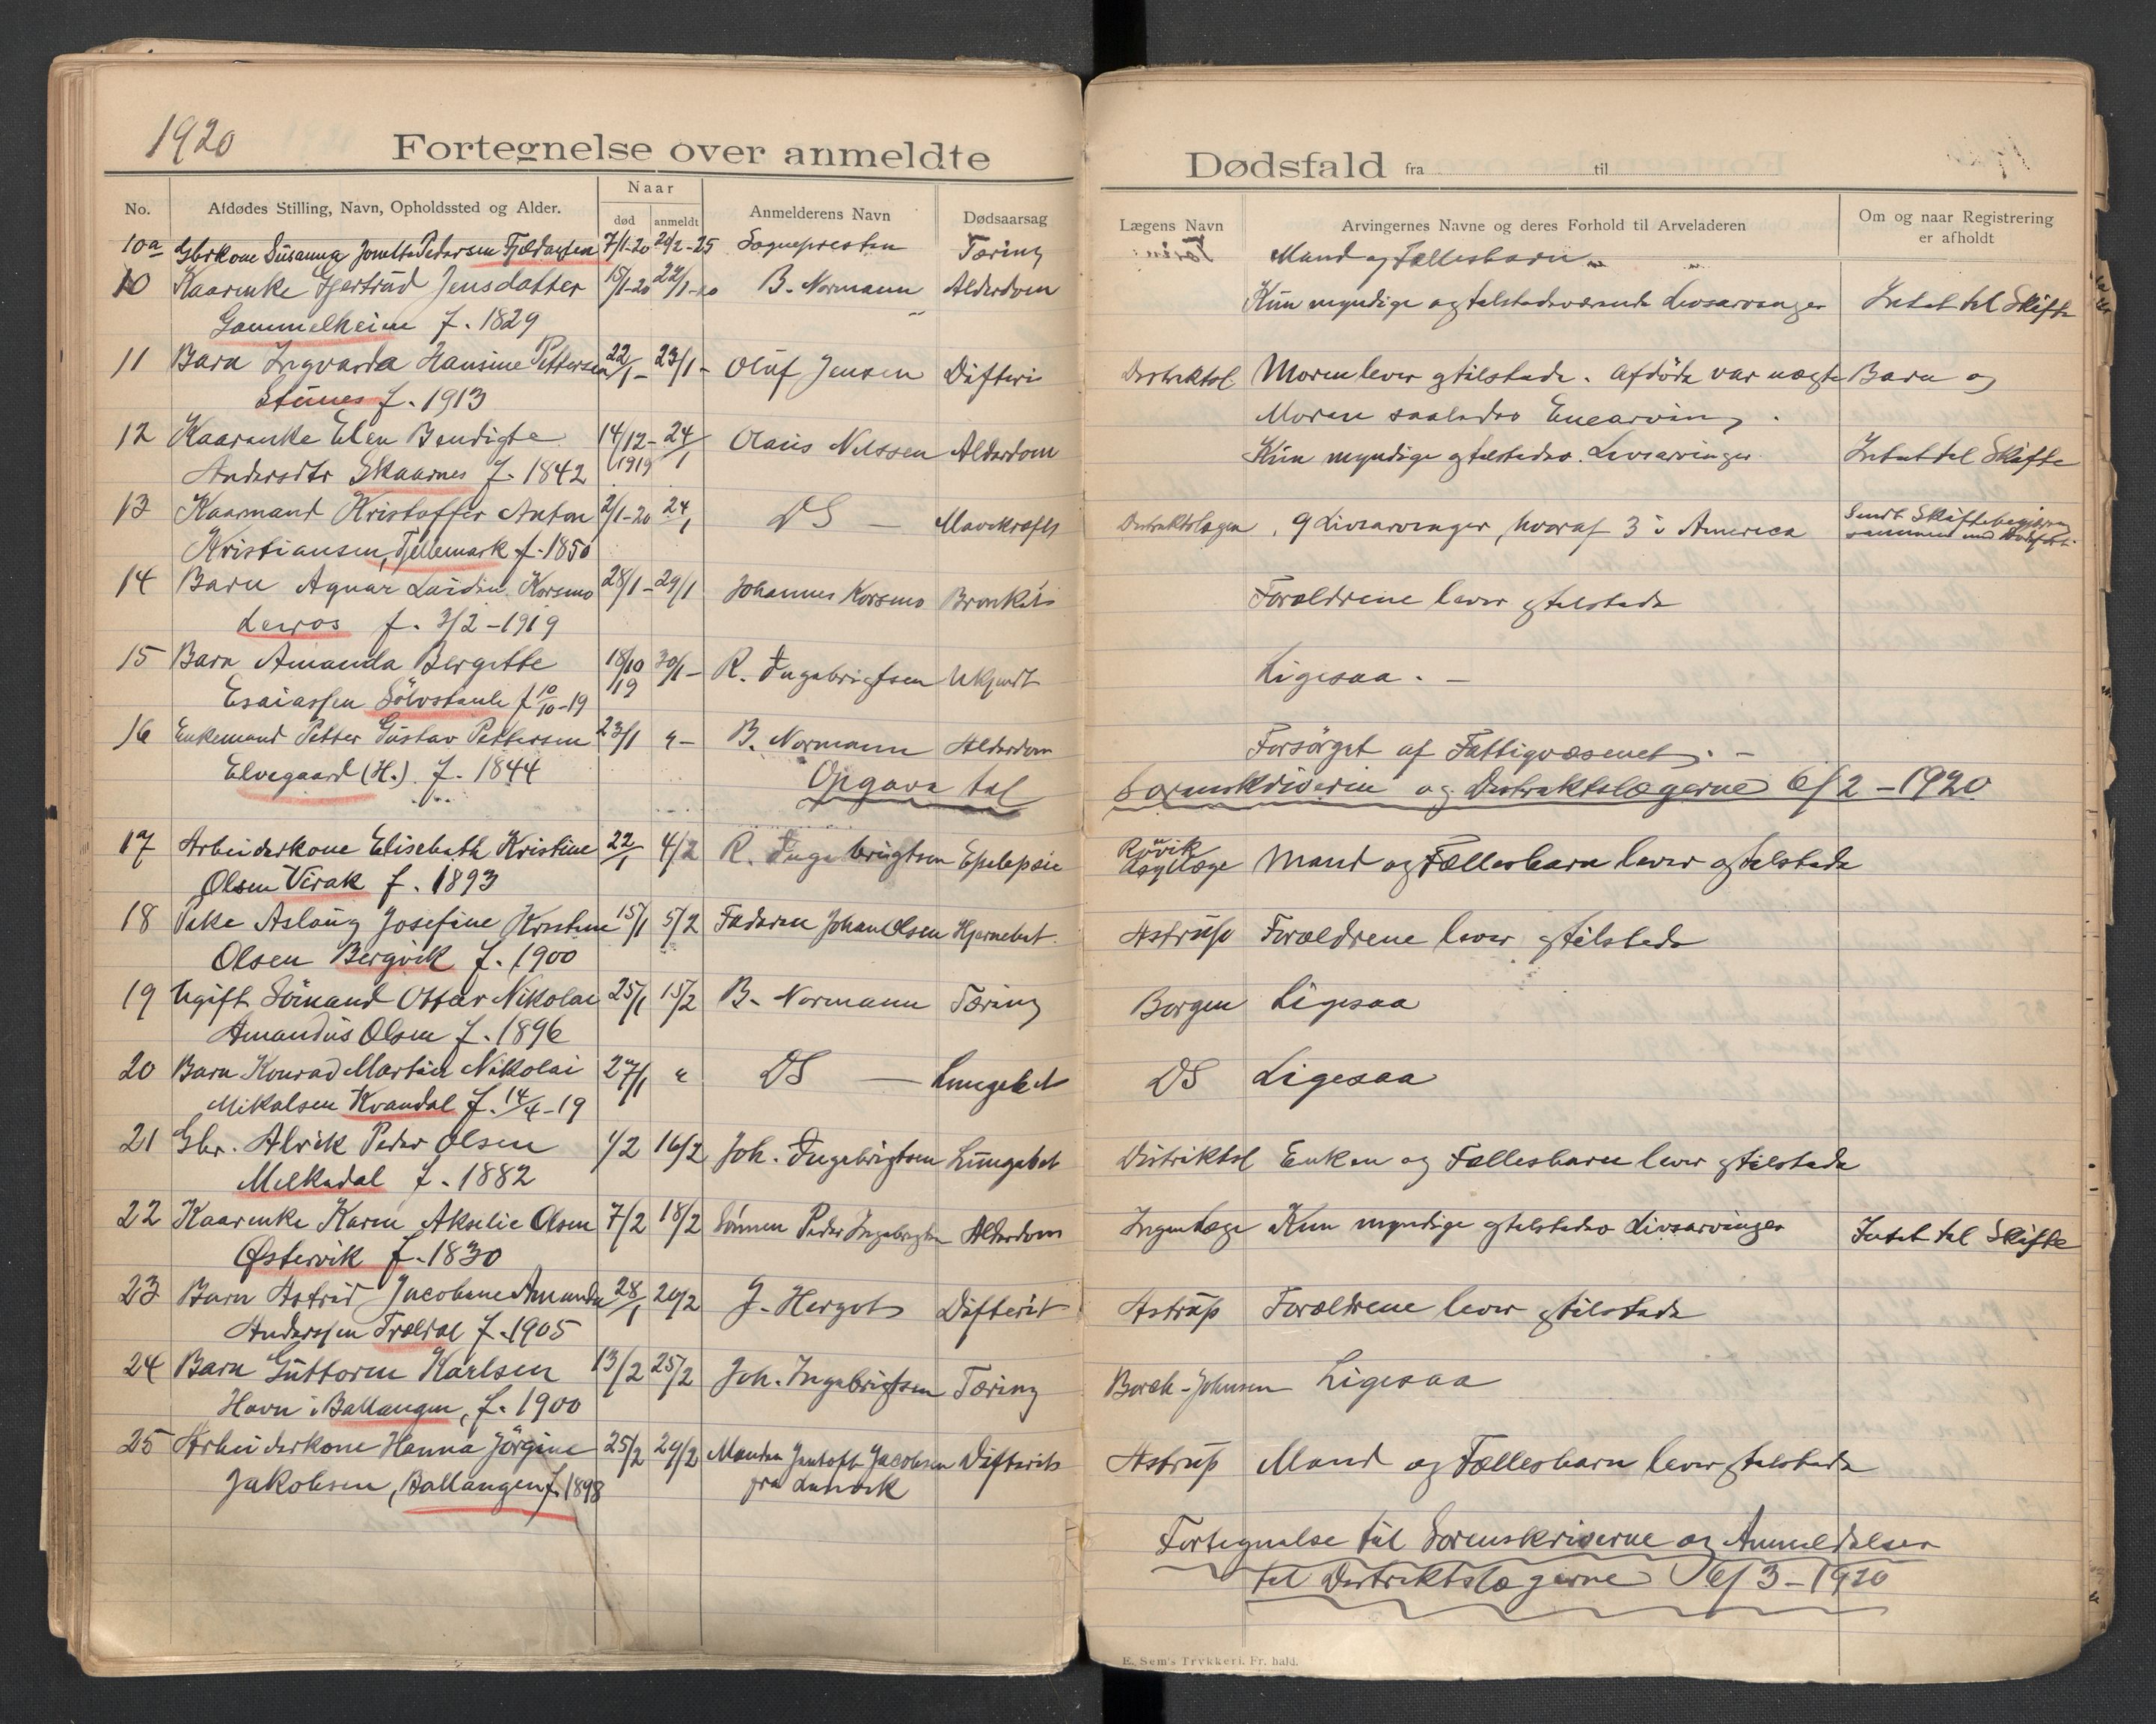 1920
Fortegnelse over anmeldte Dødsfald fra til
No. Afdødes Stilling, Navn, Opholdssted og Alder. Naar død anmeldt Anmelderens Navn Dødsaarsag Lægens Navn Arvingernes Navne og deres Forhold til Arveladeren Om og naar Registrering er afholdt
10a Gbrkone Susanna Jonette Pedersen 7/1-20 29/2-25 Sognepresten Tæring Mand og Fællesbarn
10 Kaarenke Gjertrud Jensdatter 15/1-20 22/1-20 B. Normann Alderdom Kun myndige og tilstedeværende Livsarvinger Intet til Skifte
Gammelheim f. 1829
11 Barn Ingvarda Hansine Pettersen 22/1- 23/1- Oluf Jensen Difteri Distriktsl. Moren lever og tilstede. Afdöde var uægte Barn og
Stunes f. 1913 Moren saaledes Enearving.
12 Kaarenke Elen Bendigte 14/12- 24/1 Olaus Nilssen Alderdom Kun myndige og tilstedev. Livsarvinger Intet til Skifte
Andersdtr Skaarnes f. 1842 1919
13 Kaarmand Kristoffer Anton 2/1-20 24/1 DS — Mavekræft Distriktslægen 9 Livsarvinger, hvoraf 3 i America Sendt Skiftebegjæring
Kristiansen, Tjellemark f. 1850 sammen med
14 Barn Agnar Luidin Korsmo 28/1- 29/1 Johannes Korsmo Bronkit Forældrene lever og tilstede
f. 3/2-1919
15 Barn Amanda Bergitte 18/10 19 30/1- R. Ingebrigtsen Ukjendt Ligesaa. —
Esaiassen Sölvstenle f 10/10-19
16 Enkemand Petter Gustav Pettersen 23/1 "- B. Normann Alderdom Forsörget af Fattigvæsenet. -
Elvegaard (H.) f. 1844
Opgave til Sorenskriveren og Distriktslægerne 6/2-1920
17 Arbeiderkone Elisebeth Kristine 22/1 4/2 R. Ingebrigtsen Epelepsie Rövik Asyllæge Mand og Fællesbarn lever og tilstede
Olsen Virak f. 1893
18 Pike Aslaug Josefine Kristine 15/1 5/2 Faderen Johan Olsen Hjernebet. Astrup Forældrene lever og tilstede
Olsen Bergvik f. 1900
19 Ugift Sömand Ottar Nikolai 25/1 15/2 B. Normann Tæring Borgen Ligesaa
Amandus Olsen f. 1896
20 Barn Konrad Martin Nikolai 27/1 " DS — Lungebet DS Ligesaa
Mikalsen Kvandal f. 14/4-19
21 Gbr. Alrik Peder Olsen 1/2 16/2 Joh. Ingebrigtsen Lungebet Distriktsl Enken og Fællesbarn lever og tilstede
Melkedal f. 1882
22 Kaarenke Karen Akselie Olsen 7/2 18/2 Sönnen Peder Ingebrigtsen Alderdom Ingen Læge Kun myndige og tilstedev Livsarvinger Intet til Skifte
Østervik f. 1830
23 Barn Astrid Jacobine Amanda 28/1 20/2 J. Hergot Difterit Astrup Forældrene lever og tilstede
Anderssen Trældal f. 1905
24 Barn Guttorm Karlsen 13/2 25/2 Joh. Ingebrigtsen Tæring Borch-Johnsen Ligesaa
Havn i Ballangen, f. 1900
25 Arbeiderkone Hanna Jörgine 25/2 29/2 Manden Jentoft Jacobsen Difterit Astrup Mand og Fællesbarn lever og tilstede
Jakobsen, Ballangen f. 1898 fra
Fortegnelse til Sorenskriverne og Anmeldelser
til Distriktslægerne 6/3-1920
E. Sem's Trykkeri. Fr. hald.